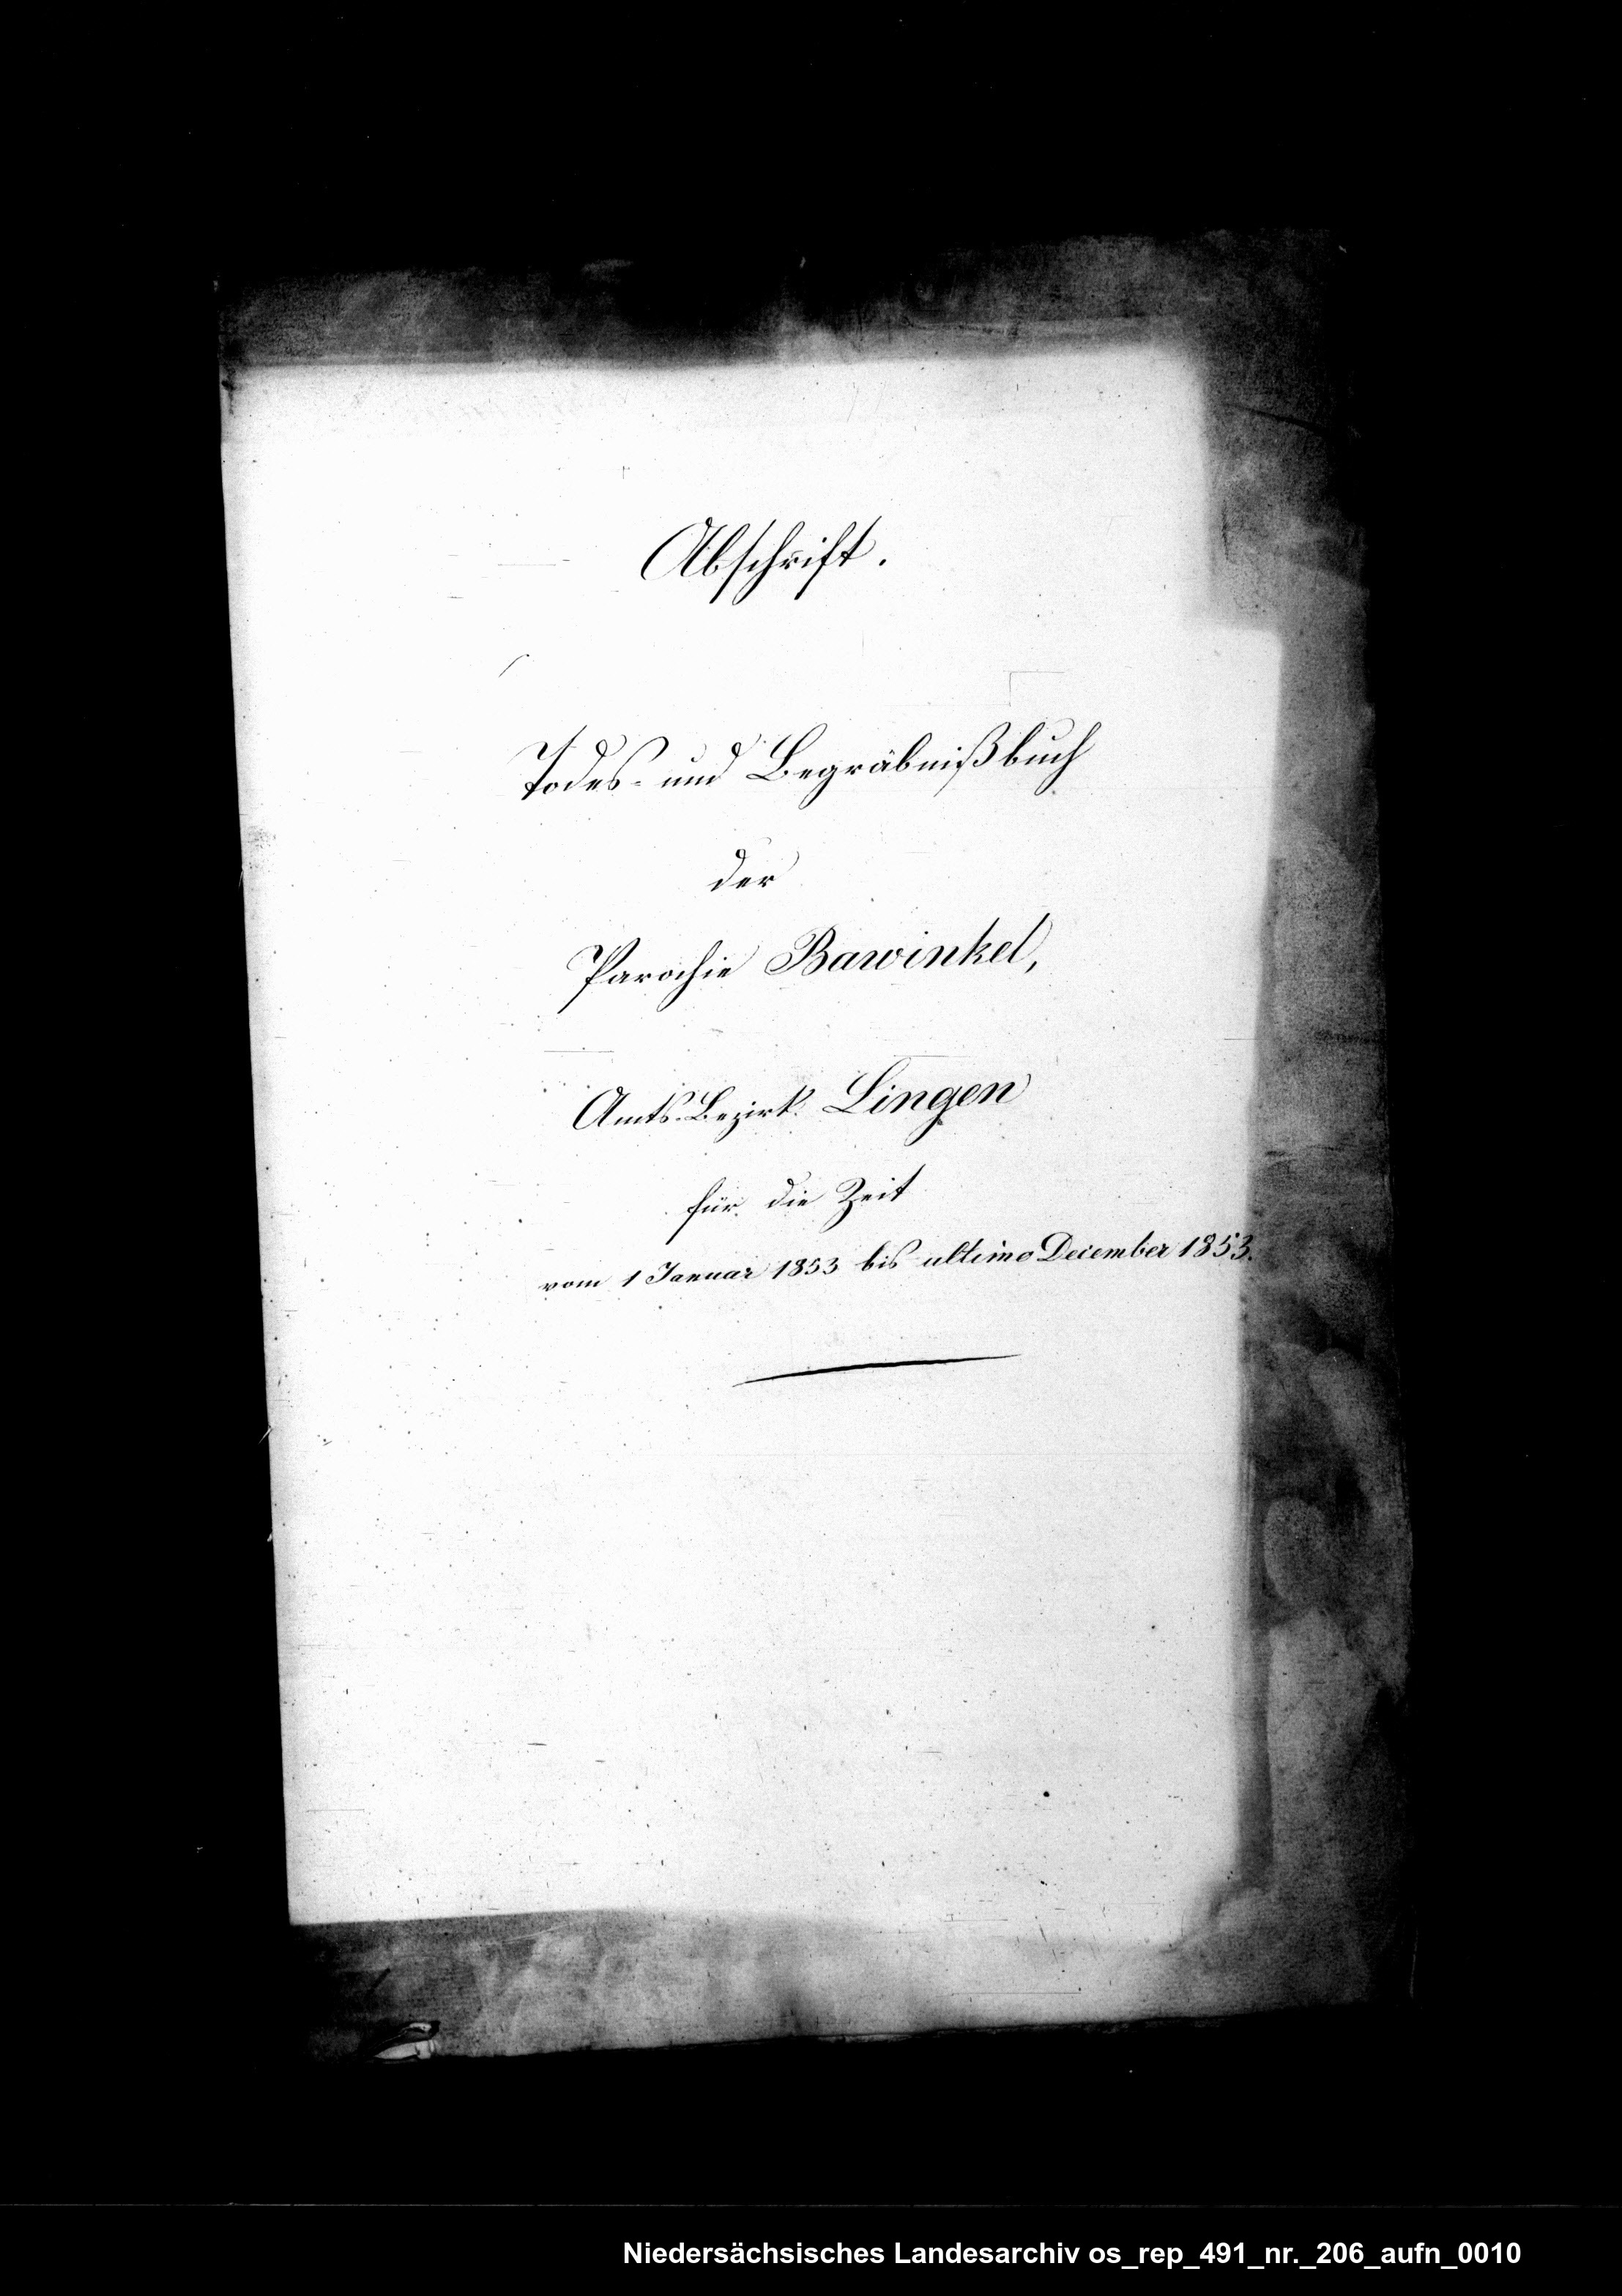 Abschrift.
Todes- und Begräbnißbuch
der
Parochie Bawinkel,
Amts-Bezirk Lingen
für die Zeit
vom 1 Januar 1853 bis ultimo December 1853.
Niedersächsisches Landesarchiv os_rep_491_nr._206_aufn_0010